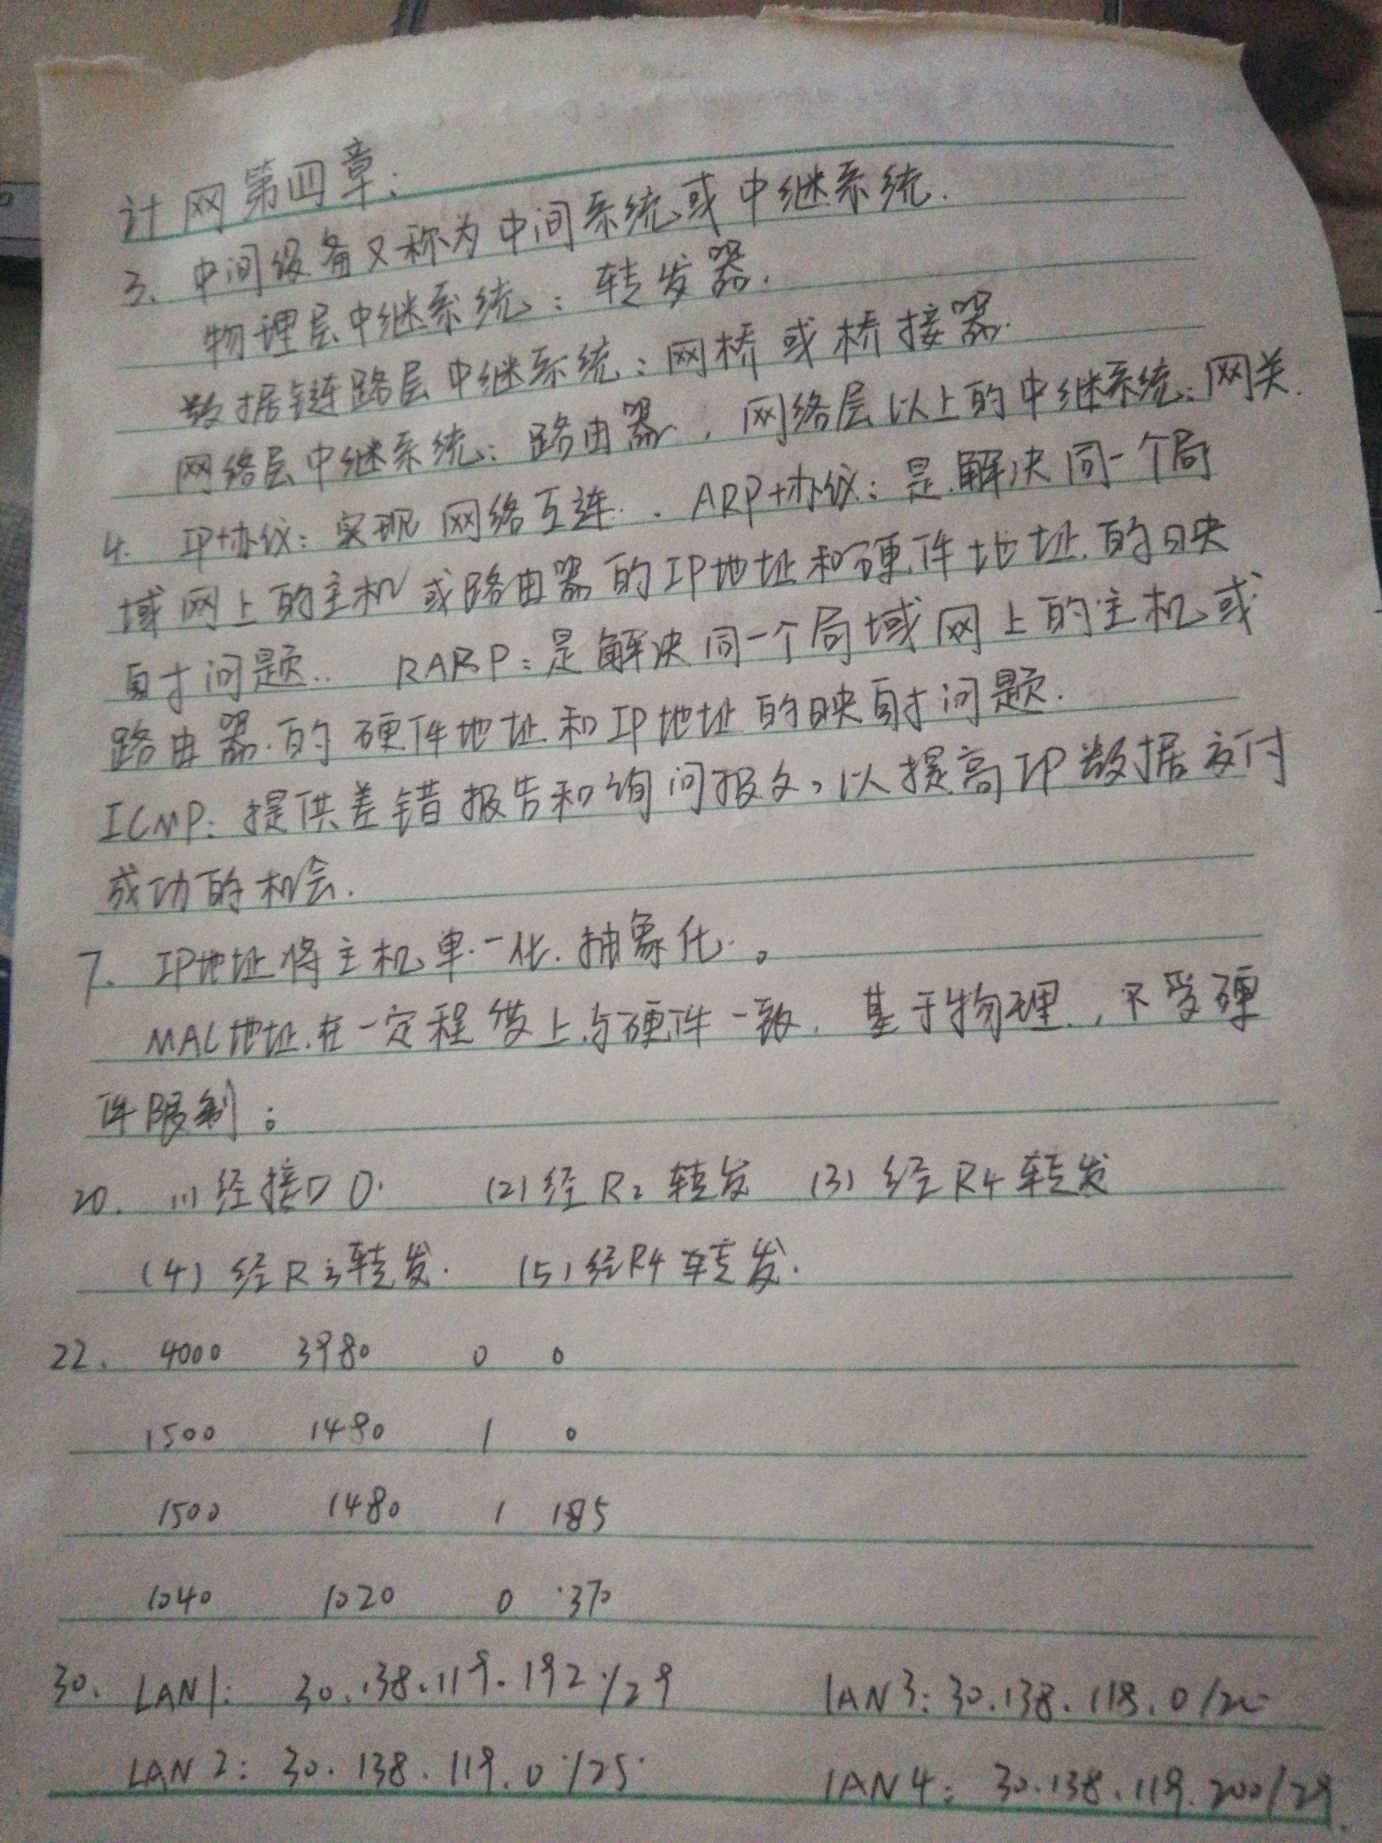 计网第四章:
3. 中间设备又称为中间系统或中继系统.
物理层中继系统: 转发器.
数据链路层中继系统: 网桥或桥接器.
网络层中继系统: 路由器, 网络层以上的中继系统: 网关.
4. IP协议: 实现网络互连. ARP协议: 是解决同一个局
域网上的主机或路由器的IP地址和硬件地址的映
射问题. RARP: 是解决同一个局域网上的主机或
路由器的硬件地址和IP地址的映射问题.
ICMP: 提供差错报告和询问报文, 以提高IP数据交付
成功的机会.
7. IP地址将主机单一化.抽象化.。
MAC地址在一定程度上与硬件一致. 基于物理, 不受硬
件限制;
20. (1)经接口0. (2)经R2转发 (3)经R4转发
(4)经R3转发. (5)经R4转发.
22. 4000 3980 0 0
1500 1480 1 0
1500 1480 1 185
1040 1020 0 370
30. LAN1: 30.138.119.192/29 LAN3: 30.138.118.0/
LAN2: 30.138.119.0/25 LAN4: 30.138.119.200/29